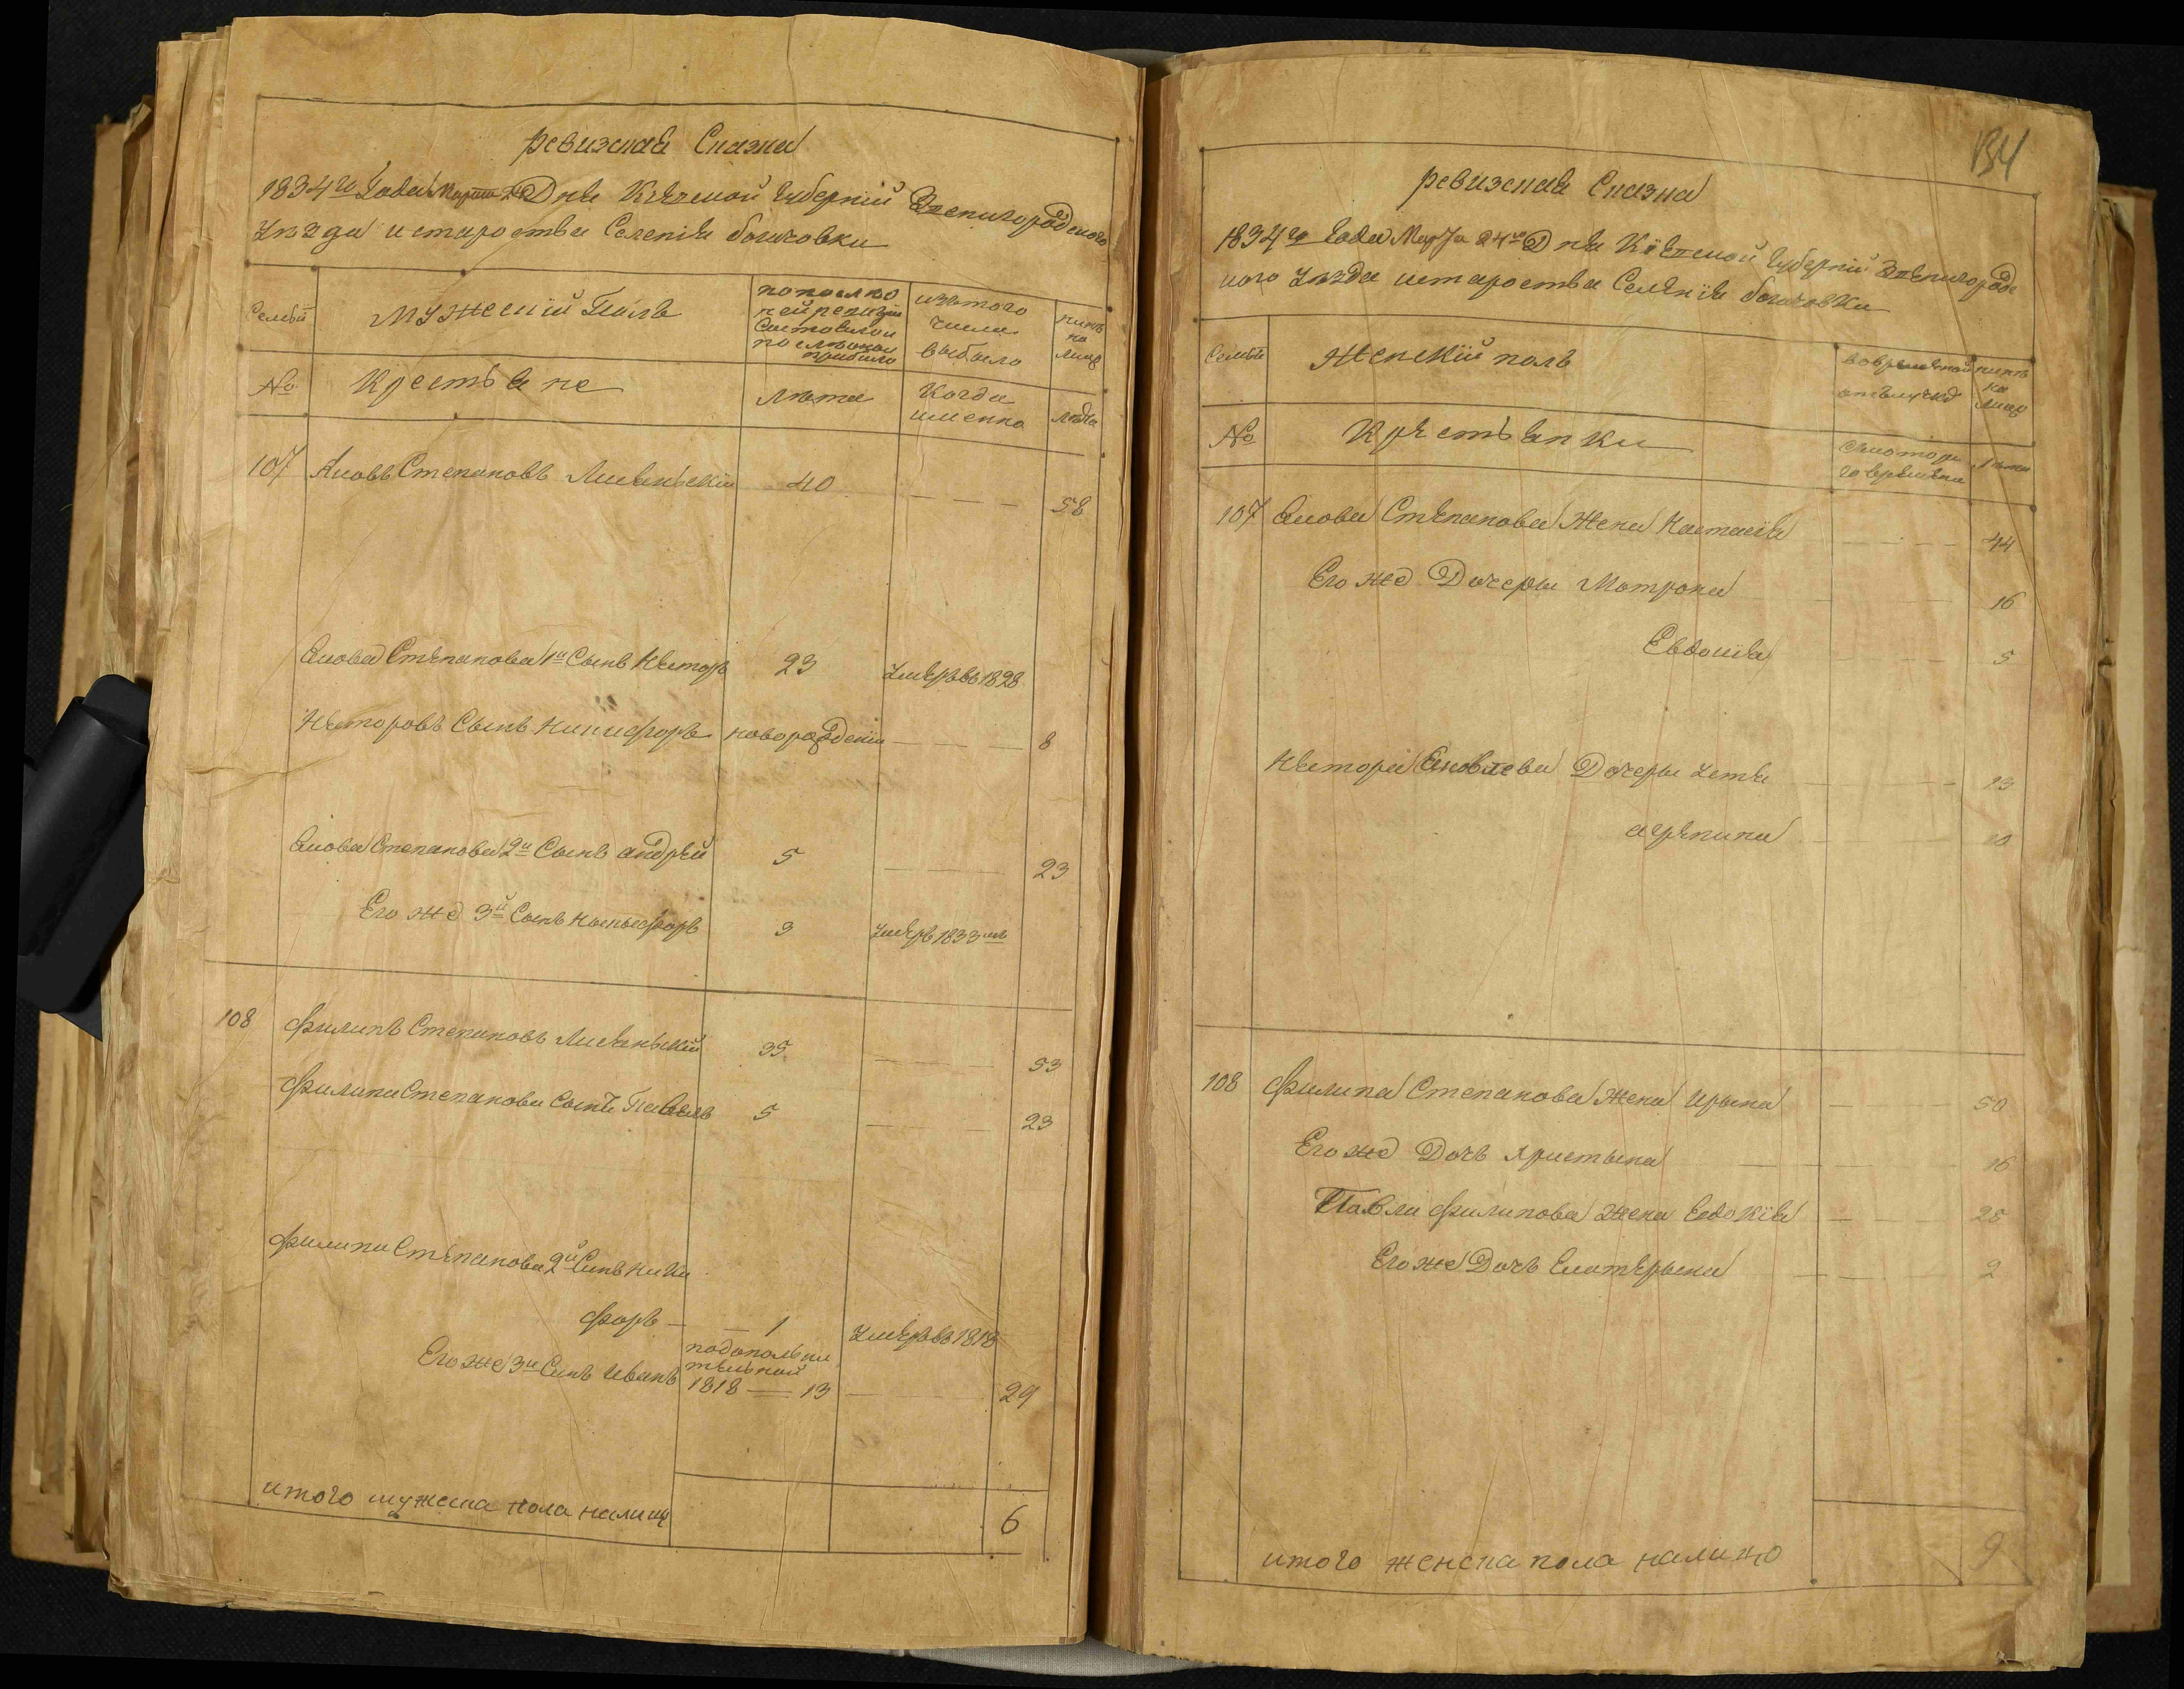 ревизская Сказка
1834го Года Марта 24го Дня Кіевской Губерніи Звенигородского
уезда и староства Селенія богачовки
Семьи
Мужескій Полъ
по последней ревизіи состояло и после оной прибыло
изъ того числа выбыло
ныне на лицо
№
Крестьяне
лета
Когда именно
лета
107 Яковъ Степановъ Лисянскій 40 — — — 58
Якова Степанова 1й Сынъ Несторъ 23 умеръ въ 1828
Несторовъ Сынъ Никифоръ новорожденій — — — 8
Якова Степанова 2й Сынъ андрей 5 — — — 23
Его же 3й Сынъ Никифоръ 3 умеръ 1833мъ
108 Филипъ Степановъ Лисянскій 35 — — — 53
Филипа Степанова Сынъ Павелъ 5 — — — 23
Филипа Степанова 2й Сынъ Ники
форъ — — 1 умеръ въ 1818
Его же 3й Сынъ Иванъ
1818 — 13 — — 29
итого мужеска пола налицо 6
134
ревизская Сказка
1834го Года Марта 24го Дня Кіевской Губерніи Звенигородс
кого уезда и староства Селенія богачовки
Семьи
Женскій полъ
во временной отлучке
ныне на лицо
№
Крестьянки
с которого времени
лета
107 Якова Степанова Жена Настасія — — — 44
Его же Дочеры Матрона — — 16
Евдокія — — 5
Нестора Яковлева Дочеры — — — 13
агрепина — — 10
108 Филипа Степанова Жена Ирына — — — 50
Его же Дочь Христына — — — 16
Павла Филипова Жена Евдокія — — — 25
Его же Дочь Екатерына — — — 2
итого женска пола налицо 9